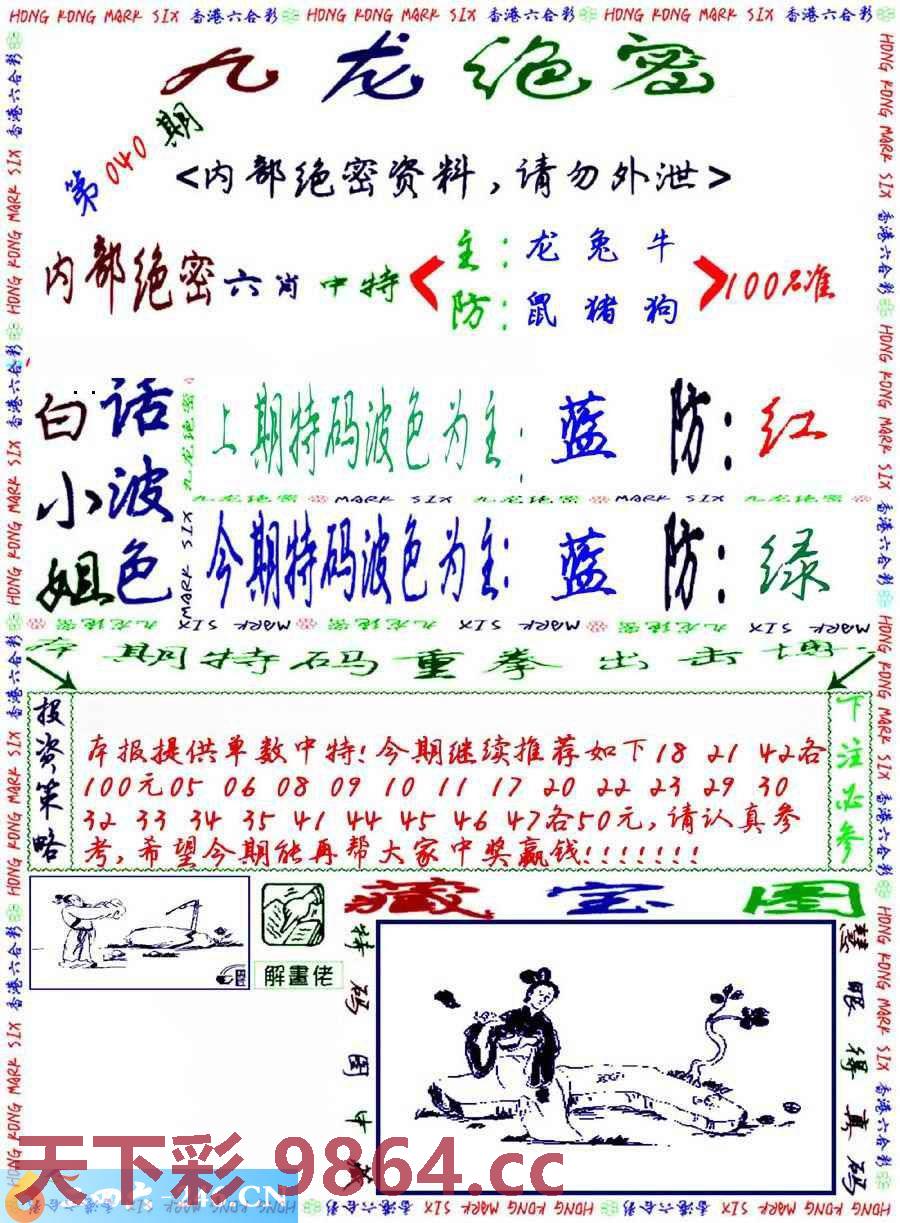 HONG KONG MARK SIX 香港六合彩 HONG KONG MARK SIX 香港六合彩 HONG KONG MARK SIX 香港六合彩
九龙绝密
第040期
<内部绝密资料,请勿外泄>
内部绝密六肖中特
主:龙兔牛
防:鼠猪狗
100%准
白小姐
话波色
上期特码波色为主:蓝 防:红
九龙绝密 MARK SIX 九龙绝密 MARK SIX 九龙绝密
今期特码波色为主:蓝 防:绿
MARK SIX 九龙绝密 MARK SIX 九龙绝密 MARK SIX 九龙绝密
本期特码重拳出击
投资策略
本报提供单数中特!今期继续推荐如下18 21 42各
100元05 06 08 09 10 11 17 20 22 23 29 30
32 33 34 35 41 44 45 46 47各50元,请认真参
考,希望今期能再帮大家中奖赢钱!!!!!!!
下注必参
解畫佬
藏宝图
特码图中藏
慧眼得真码
天下彩.9864.cc
246.CN
HONG KONG MARK SIX 香港六合彩